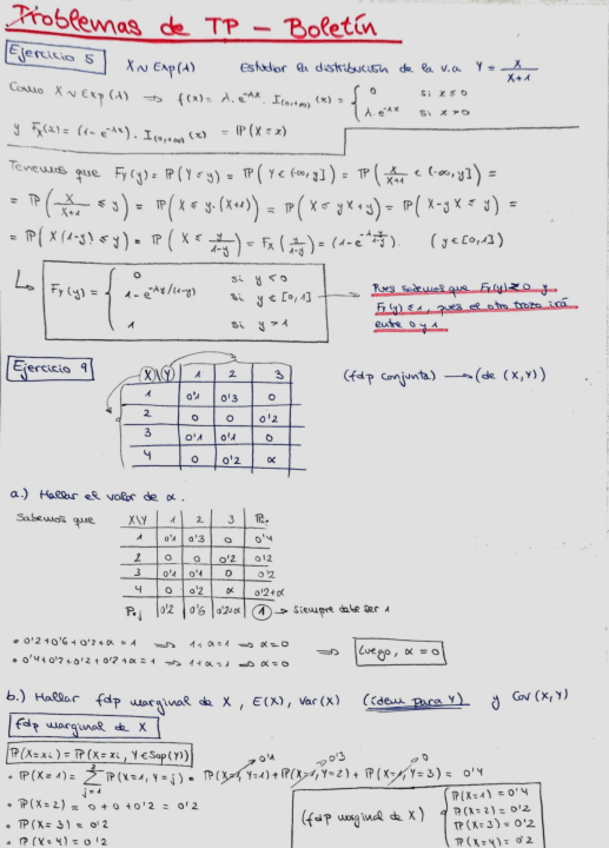 Problemas de TP - Boletín
Ejercicio 5   X ~ Exp(λ)   Estudiar la distribución de la v.a. Y = X/(X+1)
Como X ~ Exp(λ) ⟹ f(x) = λ·e^(-λx) · I_(0,+∞)(x) = { 0 si x ≤ 0
λ·e^(-λx) si x > 0
y F_X(x) = (1-e^(-λx)) · I_(0,+∞)(x) = P(X ≤ x)
Tenemos que F_Y(y) = P(Y ≤ y) = P(Y ∈ (-∞,y]) = P(X/(X+1) ∈ (-∞,y]) =
= P(X/(X+1) ≤ y) = P(X ≤ y·(X+1)) = P(X ≤ yX+y) = P(X-yX ≤ y) =
= P(X(1-y) ≤ y) = P(X ≤ y/(1-y)) = F_X(y/(1-y)) = (1-e^(-λ y/(1-y))). (y ∈ [0,1])
F_Y(y) = { 0 si y < 0
1-e^(-λy/(1-y)) si y ∈ [0,1]
1 si y > 1
Pues sabemos que F_Y(y) ≥ 0 y
F_Y(y) ≤ 1, pues el otro trozo irá
entre 0 y 1.
Ejercicio 9
X\Y 1 2 3
1 0'1 0'3 0
2 0 0 0'2
3 0'1 0'1 0
4 0 0'2 α
(fdp conjunta) → (de (X,Y))
a.) Hallar el valor de α.
Sabemos que
X\Y 1 2 3 Pi.
1 0'1 0'3 0 0'4
2 0 0 0'2 0'2
3 0'1 0'1 0 0'2
4 0 0'2 α 0'2+α
P.j 0'2 0'6 0'2+α 1 → siempre debe ser 1
• 0'2+0'6+0'2+α = 1 ⟹ 1+α=1 ⟹ α=0
• 0'4+0'2+0'2+0'2+α = 1 ⟹ 1+α=1 ⟹ α=0
⟹ Luego, α = 0
b.) Hallar fdp marginal de X, E(X), Var(X) (ídem para Y) y Cov(X,Y)
fdp marginal de X
P(X=xi) = P(X=xi, Y∈Sop(Y))
• P(X=1) = Σ_(j=1)^3 P(X=1, Y=j) = P(X=1, Y=1) + P(X=1, Y=2) + P(X=1, Y=3) = 0'4
0'1 0'3 0
• P(X=2) = 0+0+0'2 = 0'2
• P(X=3) = 0'2
• P(X=4) = 0'2
(fdp marginal de X) { P(X=1) = 0'4
P(X=2) = 0'2
P(X=3) = 0'2
P(X=4) = 0'2